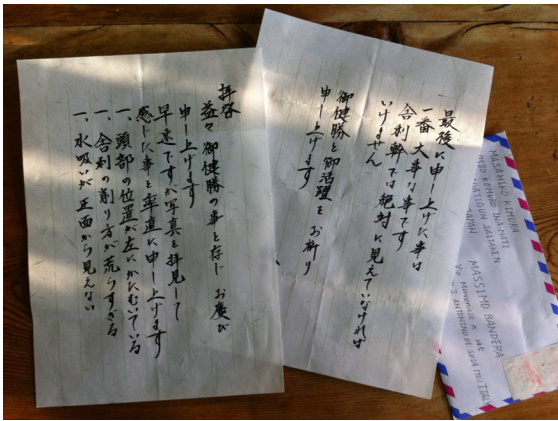 拝啓
益々御健勝の事と存じお慶び
申し上げます
早速ですが写真を拝見して
感じた事を率直に申し上げます
一、頭部の位置が左にかたむいている
一、舎利の削り方が荒らすぎる
一、水吸いが正面から見えない
最後に申し上げた事は
一番大事な事です
舎利幹では絶対に見えていなければ
いけません
御健勝と御活躍をお祈り
申し上げます
MASAHIKO KIMURA
JAPAN
MASSIMO BANDERA
ITALY